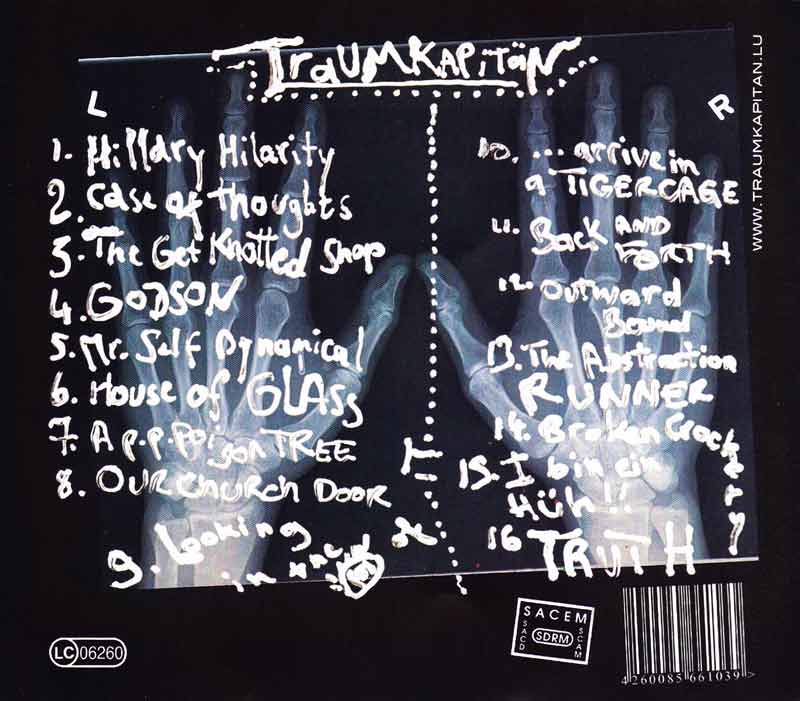 TRAUMKAPITÄN
L
1. Hillary Hilarity
2. Case of thoughts
3. The Get Knotted Shop
4. GODSON
5. Mr. Self Dynamical
6. House of GLASs
7. A p.p.Poison TREE
8. OUR CHURCH DOOR
9. Looking
in
R
10. ... arrive in
a TIGERCAGE
11. Back AND
FORTH
12. outward
Bound
13. The Abstraction
RUNNER
14. Broken Crockery
15. I bin ein
Hüh!!
16 TRUTH
WWW.TRAUMKAPITAN.LU
LC 06260
SACEM
SACD
SDRM
SCAM
4 260085 661039 >